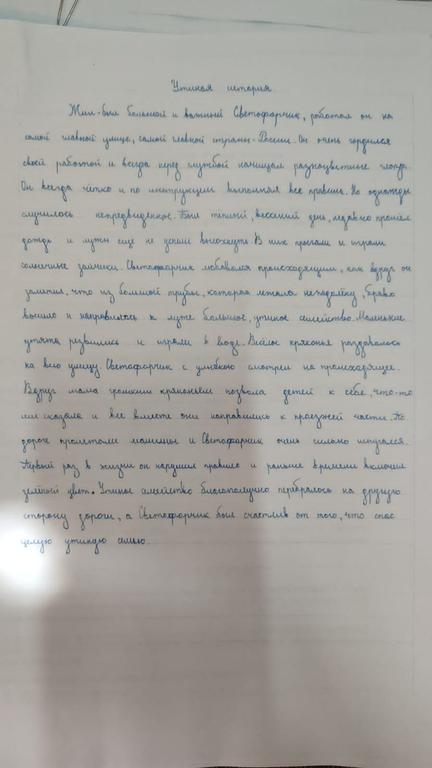 Утиная история
Жил-был большой и важный Светофорчик, работал он на
самой главной улице, самой главной страны - России. Он очень гордился
своей работой и всегда перед службой начищал разноцветные глаза.
Он всегда чётко и по инструкции выполнял все правила. Но однажды
случилось непредвиденное. Был тёплый, весенний день, недавно прошёл
дождь и лужи ещё не успели высохнуть. В них прыгали и играли
солнечные зайчики. Светофорчик любовался происходящим, как вдруг он
заметил, что из большой трубы, которая лежала неподалёку, браво
вышло и направилось к луже большое, утиное семейство. Маленькие
утята резвились и играли в воде. Весёлое кряканье раздавалось
на всю улицу. Светофорчик с улыбкой смотрел на происходящее.
Вдруг мама громким кряканьем позвала детей к себе, что-то
им сказала и все вместе они направились к проезжей части. По
дороге пролетали машины и Светофорчик очень сильно испугался.
Первый раз в жизни он нарушил правило и раньше времени включил
зелёный цвет. Утиное семейство благополучно перебралось на другую
сторону дороги, а Светофорчик был счастлив от того, что спас
целую утиную семью.